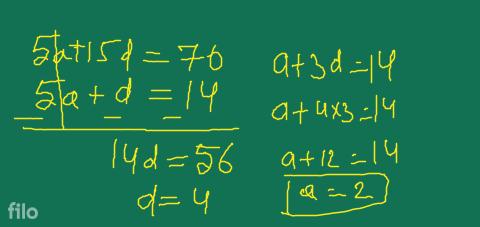 5a+15d = 70
5a + d = 14
14d = 56
d = 4
a+3d = 14
a+4x3 = 14
a+12 = 14
a = 2
filo